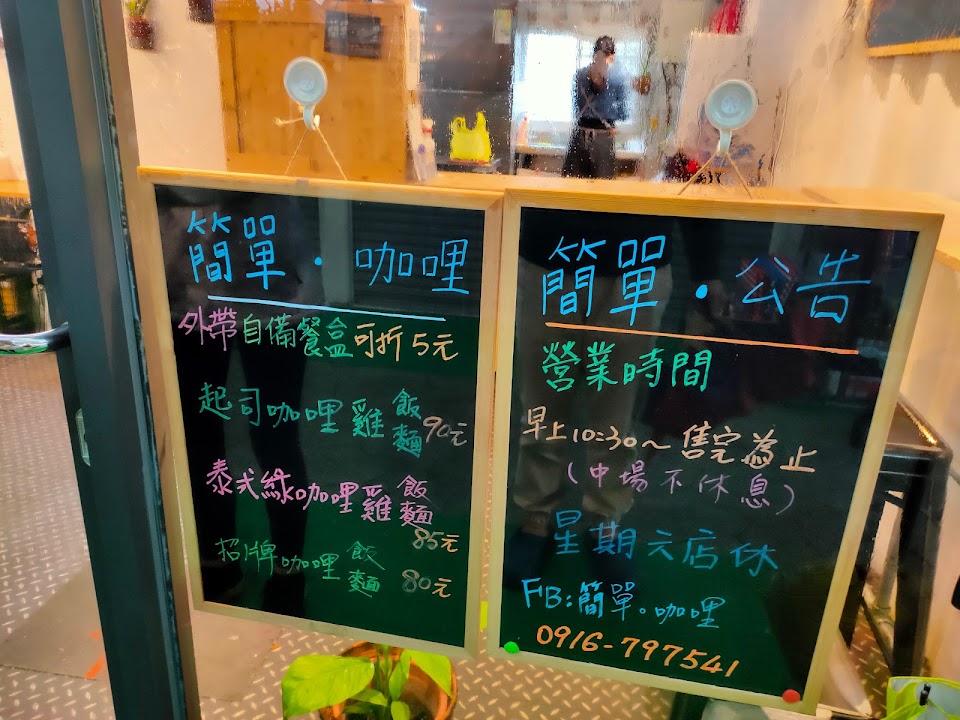 簡單·咖哩
外帶自備餐盒可折5元
起司咖哩雞飯麵90元
泰式綠咖哩雞飯麵85元
招牌咖哩飯麵80元
簡單·公告
營業時間
早上10:30~售完為止
(中場不休息)
星期六店休
FB:簡單。咖哩
0916-797541